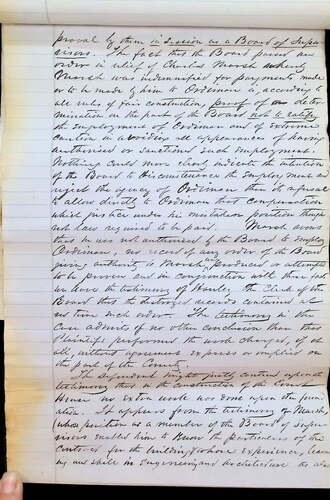 proval by them in session as a Board of Super-
visors. The fact that the Board passed an
order in relief of Charles Marsh whereby
Marsh was indemnified for payments made
or to be made by him to Ordiman is, according to
all rules of fair construction, proof of a deter-
mination on the part of the Board not to ratify
the employment of Ordiman and of extreme
caution in avoiding all appearances of having
authorized or sanctioned such employment.
Nothing could more clearly indicate the intention
of the Board to the employment and
reject the agency of Ordiman than its refusal
to allow directly to Ordiman that compensation
which justice under his position though
not law required to be paid. Marsh avows
that he was not authorized by the Board to employ
Ordiman, no record of any order of the Board
giving authority is proved, produced or attempted
to be proven and in conjunction with this part
we have the testimony of the Clerk of the
Board that the destroyed records contained at
no time such order. The testimony in the
case admits of no other conclusion than that
Plaintiff performed the work charged, if at
all, without agreement express or implied on
the part of the County.
The Defendant might justly contend upon the
testimony that in the construction of the Court
House no extra work was done upon the foun-
dation. It appears from the testimony of Marsh
(whose position as a member of the Board of Super-
visors enabled him to know the particulars of the
contract for the building & whose experience, learn-
ing and skill in Engineering and architecture